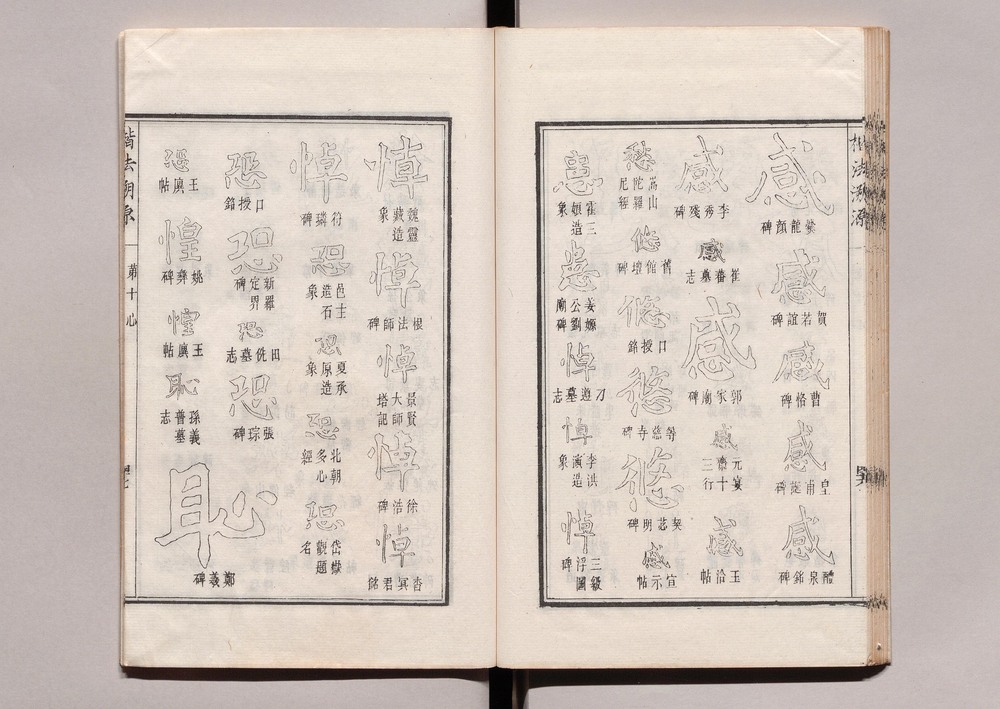 楷法溯源
感 爨龍顏碑
感 賀若誼碑
感 曹恪碑
感 皇甫誕碑
感 醴泉銘碑
感 李秀殘碑
感 崔蕃墓志
感 郭家廟碑
感 元宴齋三十行
感 王洽帖
愁 嵩山陀羅尼經
悠 舊館壇碑
悠 口授銘
悠 等慈寺碑
悠 契苾明碑
感 宣示帖
患 霍三娘造象
患 姜嫄公劉廟碑
悼 刁遵墓志
悼 李洪演造象
悼 三級浮圖碑
悼 魏靈藏造象
悼 根法師碑
悼 景賢大師塔記
悼 徐浩碑
悼 杳冥君銘
悼 符璘碑
恐 邑主造石象
恐 夏承原造象
恐 北朝多心經
恐 岱嶽觀題名
恐 口授銘
恐 新羅定界碑
恐 田侁墓志
恐 張琮碑
恐 王廙帖
惶 姚彝碑
惶 王廙帖
恥 孫義普墓志
恥 鄭羲碑
楷法溯源 第十 心